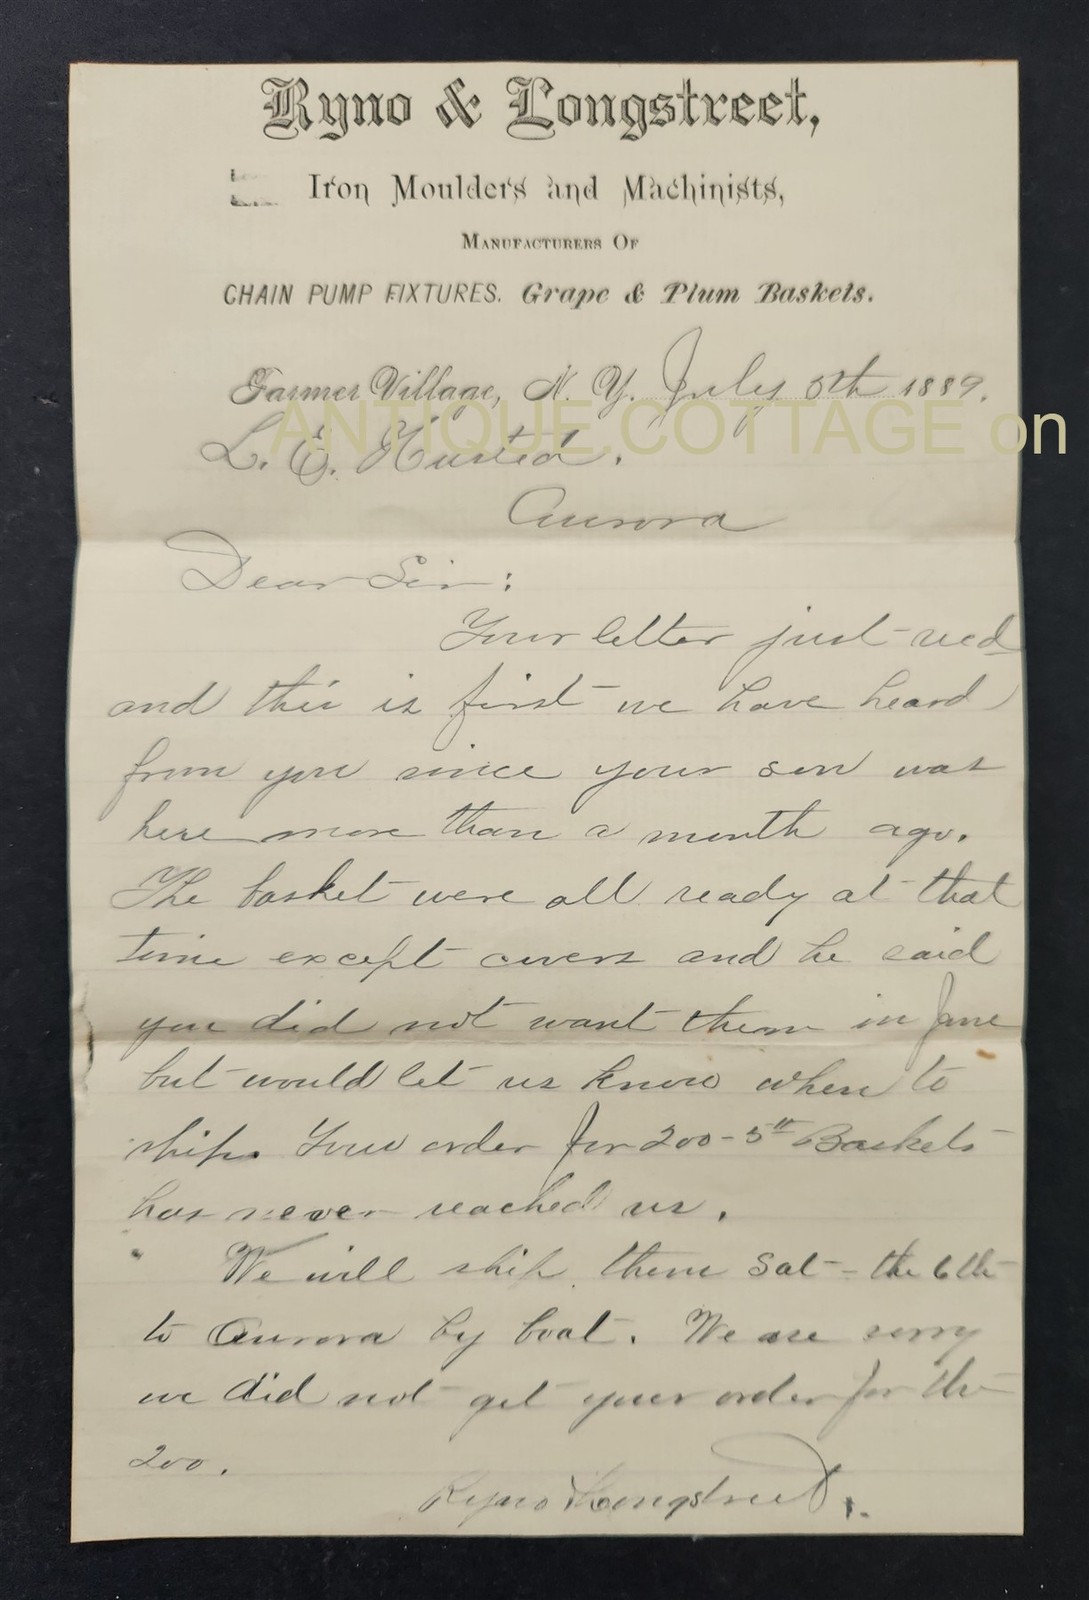 Ryno & Longstreet,
Iron Moulders and Machinists,
Manufacturers Of
CHAIN PUMP FIXTURES. Grape & Plum Baskets.
Farmer Village, N. Y. July 5th 1889.
L. E. Husted.
ANTIQUE.COTTAGE on
Aurora
Dear Sir:
Your letter just recd
and this is first we have heard
from you since your son was
here more than a month ago.
The basket were all ready at that
time except covers and he said
you did not want them in June
but would let us know when to
ship. Your order for 200 - 5 lb Baskets
has never reached us.
We will ship them Sat - the 6th
to Aurora by boat. We are sorry
we did not get your order for the
200.
Ryno & Longstreet.